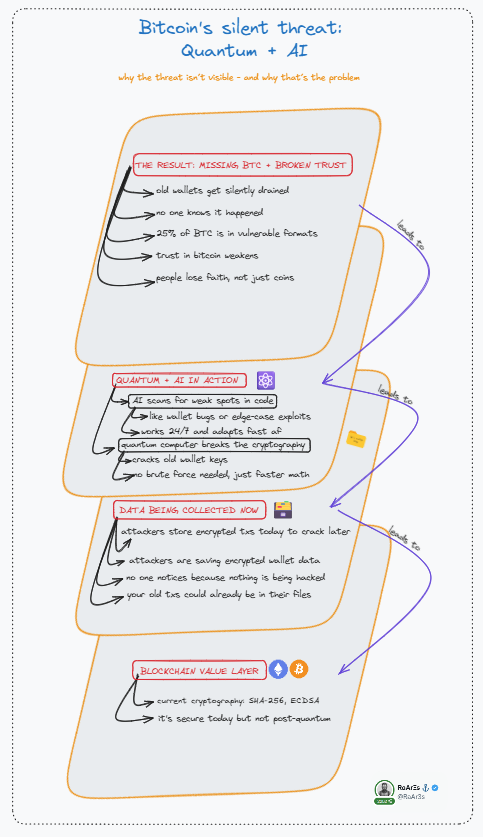 Bitcoin's silent threat:
Quantum + AI
why the threat isn't visible - and why that's the problem
THE RESULT: MISSING BTC + BROKEN TRUST
old wallets get silently drained
no one knows it happened
25% of BTC is in vulnerable formats
trust in bitcoin weakens
people lose faith, not just coins
leads to
QUANTUM + AI IN ACTION
AI scans for weak spots in code
like wallet bugs or edge-case exploits
works 24/7 and adapts fast af
quantum computer breaks the cryptography
cracks old wallet keys
no brute force needed, just faster math
leads to
DATA BEING COLLECTED NOW
attackers store encrypted txs today to crack later
attackers are saving encrypted wallet data
no one notices because nothing is being hacked
your old txs could already be in their files
leads to
BLOCKCHAIN VALUE LAYER
current cryptography: SHA-256, ECDSA
it's secure today but not post-quantum
RoAr3s
@RoAr3s